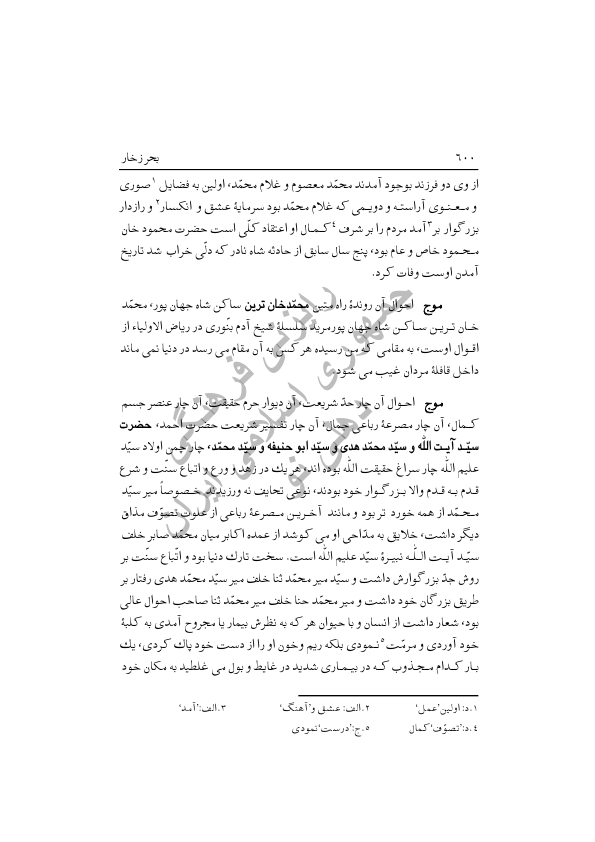 بحر زخار ۶۰۰
از وی دو فرزند بوجود آمدند محمّد معصوم و غلام محمّد، اولین به فضایل ۱ صوری
و معنوی آراسته و دویمی که غلام محمّد بود سرمایهٔ عشق و انکسار۲ و رازدار
بزرگوار بر۳ آمد مردم را بر شرف ۴ کمال او اعتقاد کلّی است حضرت محمود خان
محمود خاص و عام بود، پنج سال سابق از حادثه شاه نادر که دلّی خراب شد تاریخ
آمدن اوست وفات کرد.
موج احوال آن روندهٔ راه متین محمّدخان ترین ساکن شاه جهان پور، محمّد
خان ترین ساکن شاه جهان پور مرید سلسلهٔ شیخ آدم بنّوری در ریاض الاولیاء از
اقوال اوست، به مقامی که من رسیده هر کس به آن مقام می رسد در دنیا نمی ماند
داخل قافلهٔ مردان غیب می شود.
موج احوال آن چار حدّ شریعت، آن دیوار حرم حقیقت، آن چار عنصر جسم
کمال، آن چار مصرعهٔ رباعی جمال، آن چار تفسیر شریعت حضرت احمد، حضرت
سیّد آیت اللّه و سیّد محمّد هدی و سیّد ابو حنیفه و سیّد محمّد، چار چمن اولاد سیّد
علیم اللّه چار سراغ حقیقت اللّه بوده اند، هر یك در زهد و ورع و اتباع سنّت و شرع
قدم به قدم والا بزرگوار خود بودند، نوعی تحایف نه ورزیدند. خصوصاً میر سیّد
محمّد از همه خورد تر بود و مانند آخرین مصرعهٔ رباعی از علوت تصوّف مذاق
دیگر داشت، خلایق به مدّاحی او می کوشد از عمده اکابر میان محمّد صابر خلف
سیّد آیت اللّه نبیرهٔ سیّد علیم اللّه است. سخت تارك دنیا بود و اتّباع سنّت بر
روش جدّ بزرگوارش داشت و سیّد میر محمّد ثنا خلف میر سیّد محمّد هدی رفتار بر
طریق بزرگان خود داشت و میر محمّد حنا خلف میر محمّد ثنا صاحب احوال عالی
بود، شعار داشت از انسان و با حیوان هر که به نظرش بیمار یا مجروح آمدی به کلبهٔ
خود آوردی و مرمّت۵ نمودی بلکه ریم وخون او را از دست خود پاك کردی، یك
بار کدام مجذوب که در بیماری شدید در غایط و بول می غلطید به مکان خود
۱. د: اولین ’عمل‘ ۲. الف: عشق و ’آهنگ‘ ۳. الف: ’آمد‘
۴. د: ’تصوّف‘ کمال ۵. ج: ’درست‘ نمودی